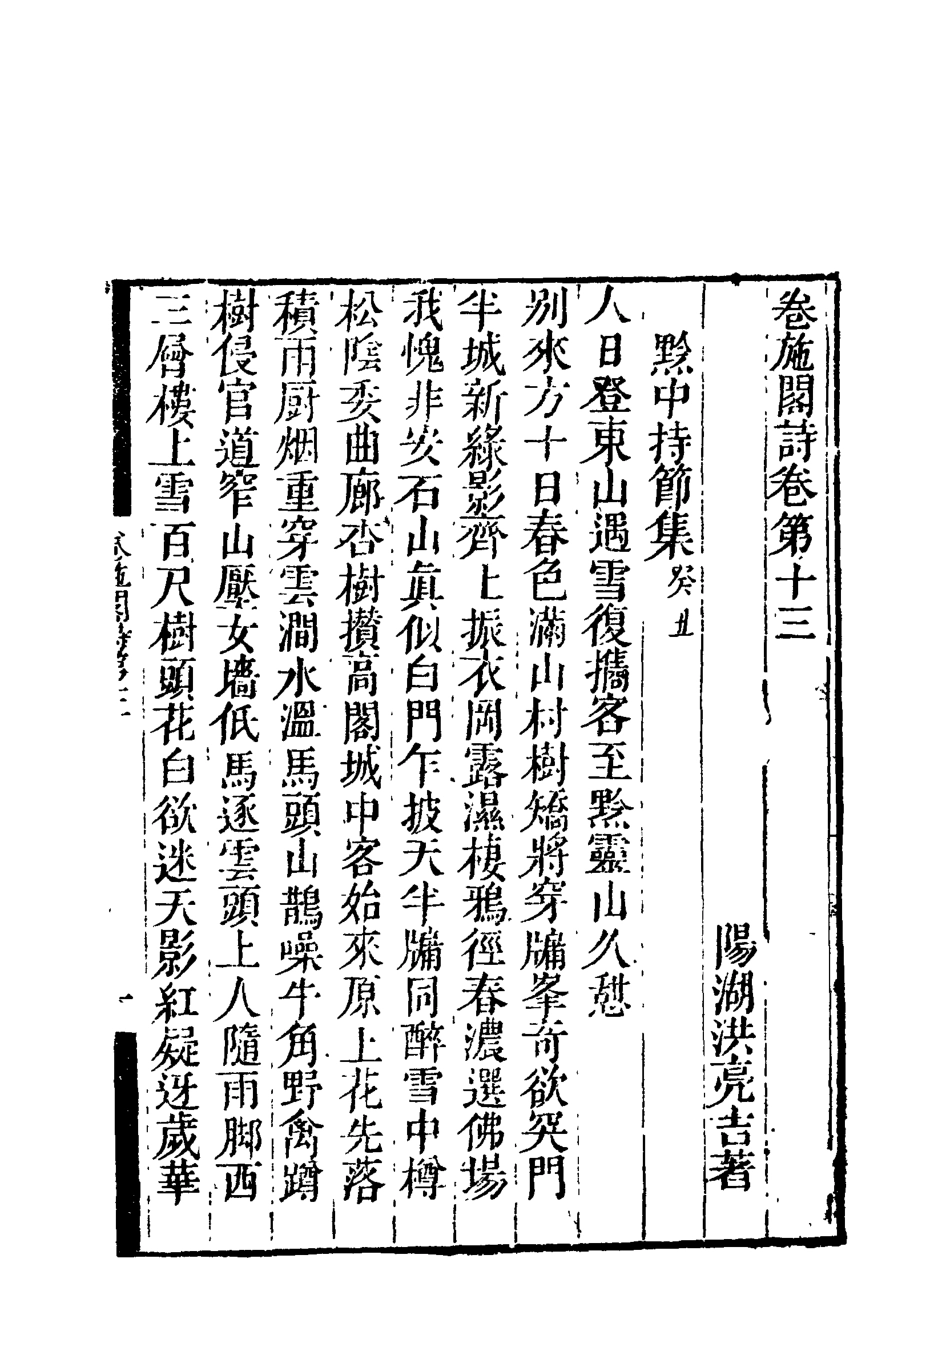 卷施閣詩卷第十三
陽湖洪亮吉著
黔中持節集癸丑
人日登東山遇雪復攜客至黔靈山久憇
別來方十日春色滿山村樹矯將穿牖峯奇欲突門
半城新綠影齊上振衣岡露濕棲鴉徑春濃選佛場
我愧非安石山眞似白門乍披天半牖同醉雪中樽
松陰委曲廊杏樹攢高閣城中客始來原上花先落
積雨厨烟重穿雲澗水溫馬頭山鵲噪牛角野禽蹲
樹侵官道窄山壓女墻低馬逐雲頭上人隨雨脚西
三層樓上雪百尺樹頭花白欲迷天影紅凝迓歲華
卷施閣詩卷十三
一